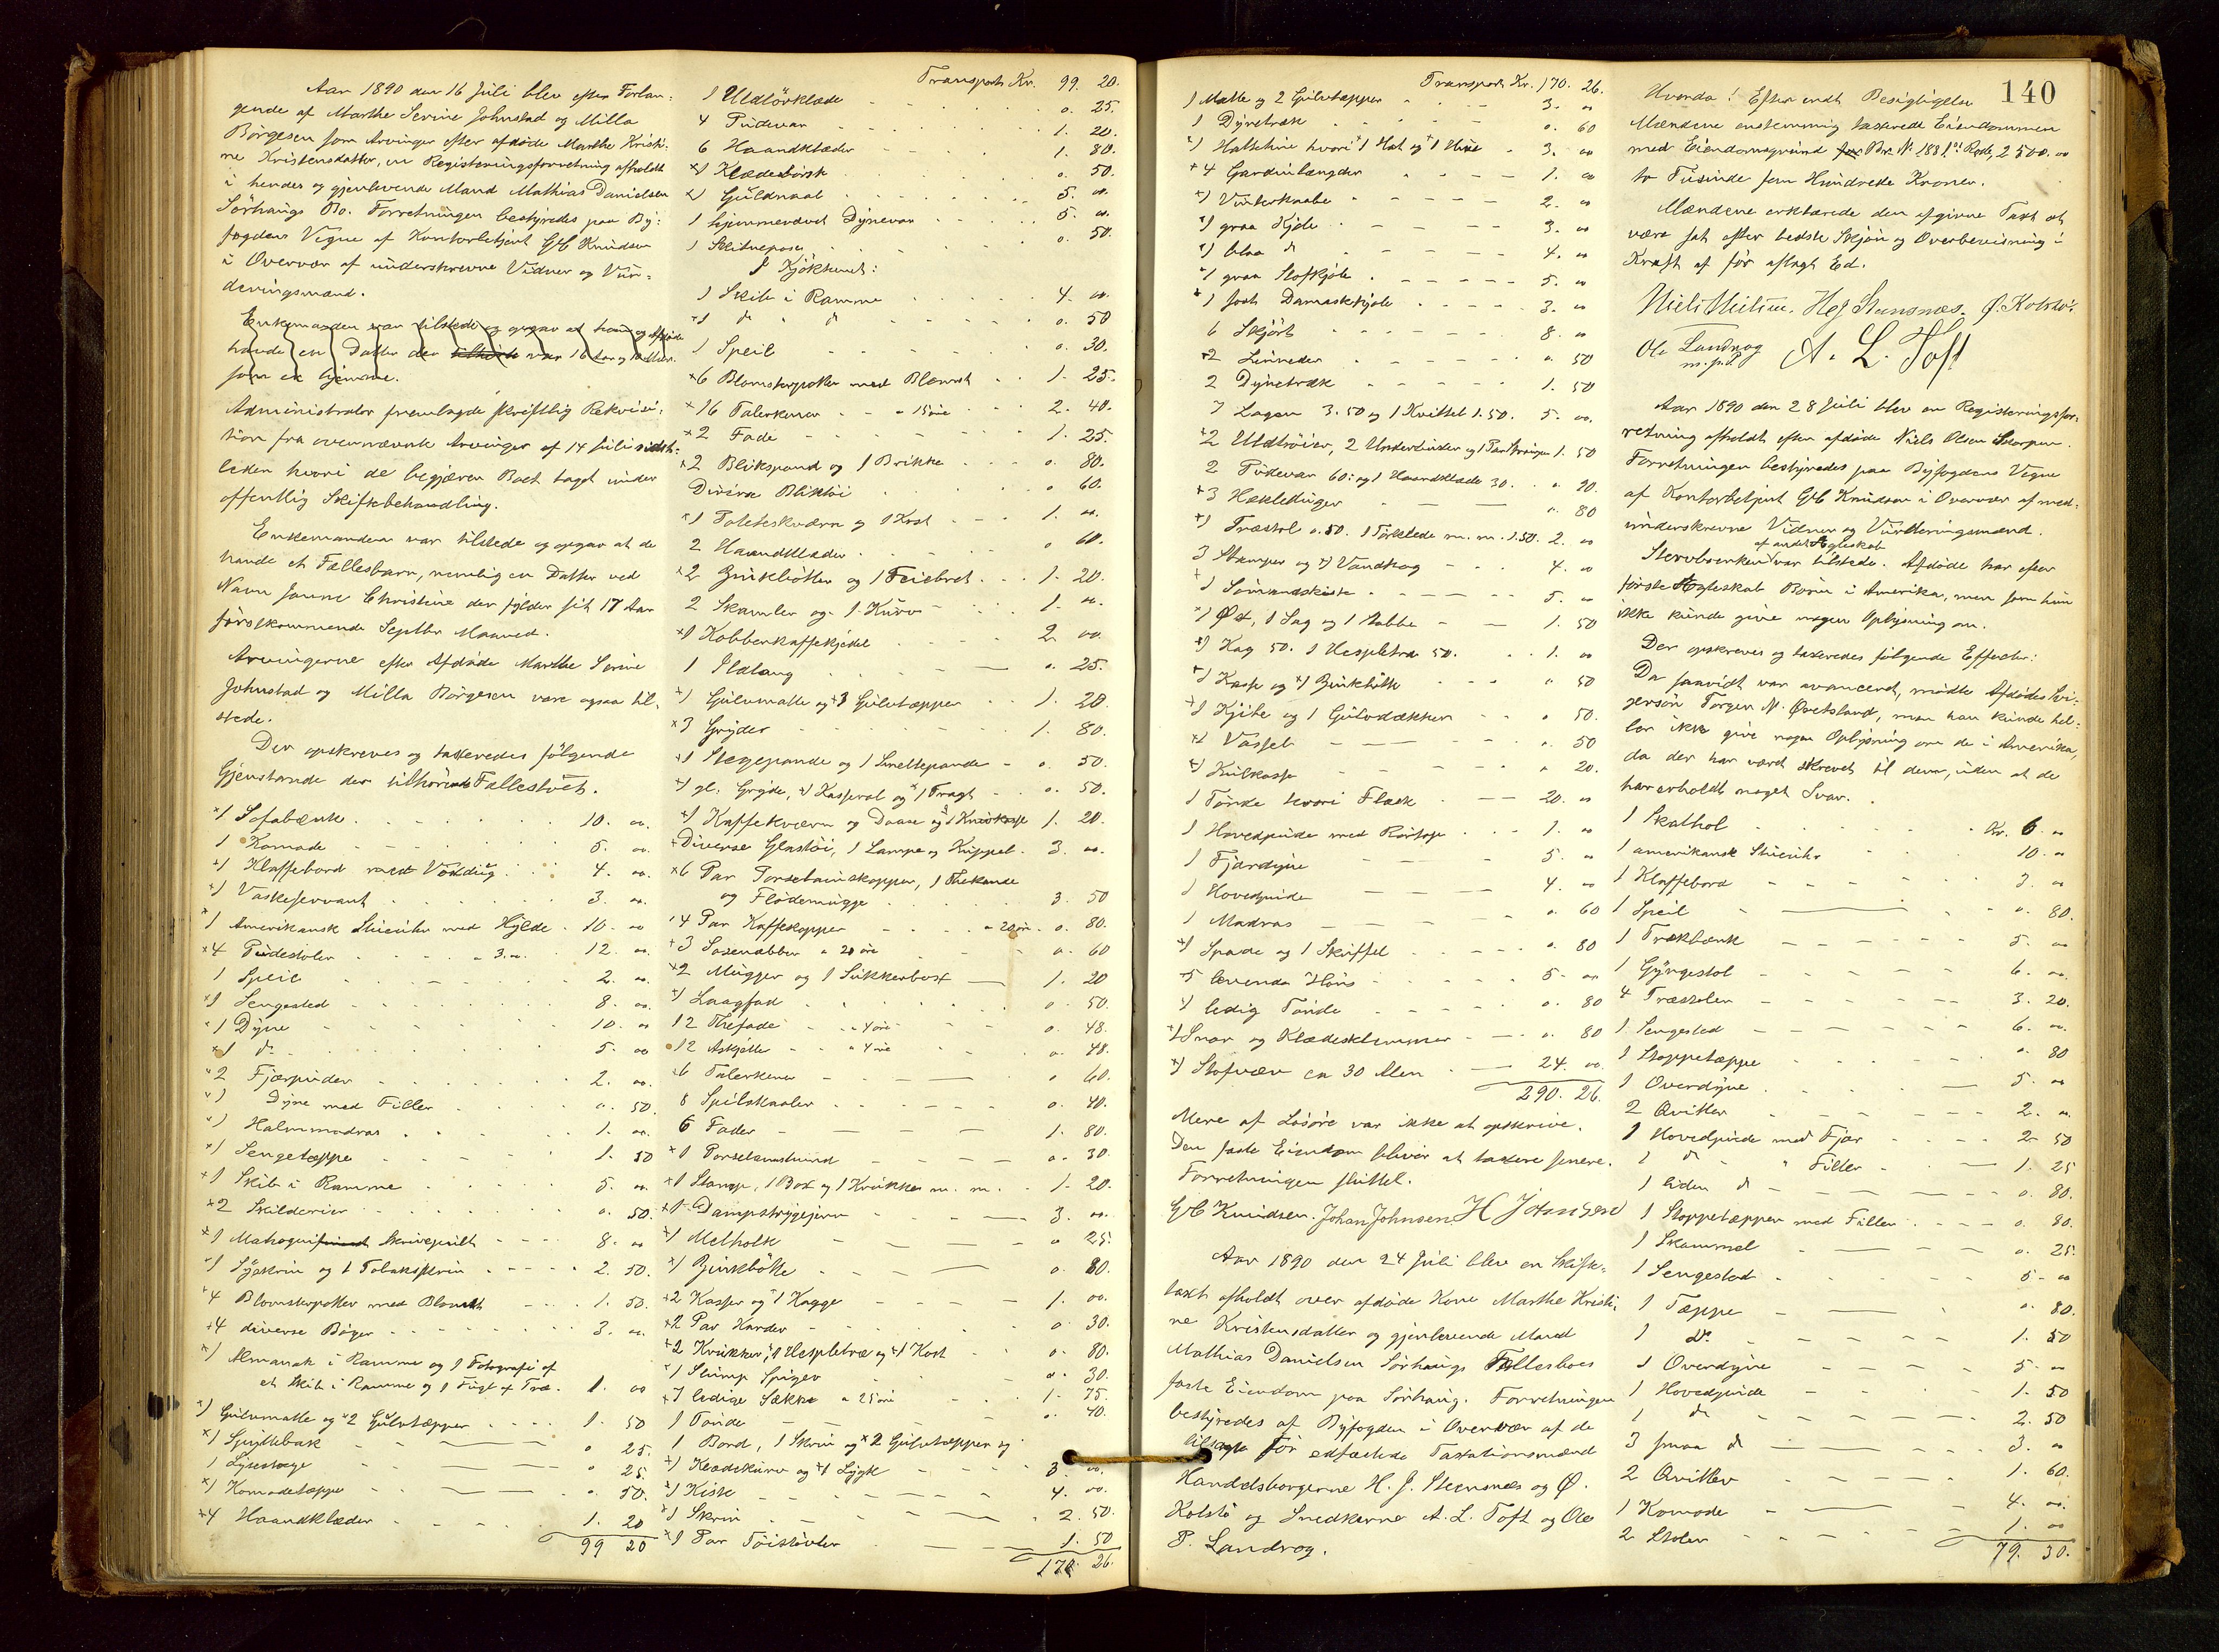 Aar 1890 den 16 Juli blev efter Forlan-
gende af Marthe Serine Johnstad og Milla
Børgesen som Arvinger efter afdøde Marthe Kristi-
ne Kristensdatter, en Registeringsforretning afholdt
i hendes og gjenlevende Mand Mathias Danielsen
Sørhaugs Bo. Forretningen bestyredes paa By-
fogdens Vegne af Kontorbetjent G C Knudsen
i Overvær af underskrevne Vidner og Vur-
deringsmænd.
Enkemanden var tilstede og opgav at han og Afdøde
havde en Datter der tilhørte var 16 Aar og
som er hjemme.
Administrator fremlagde skriftlig Rekvisi-
tion fra ovennævnte Arvinger af 14 Juli sidst-
leden hvori de begjærer Boet tagt under
offentlig Skiftebehandling.
Enkemanden var tilstede og opgav at de
havde et Fællesbarn, nemlig en Datter ved
Navn Janne Christine der fylder sit 17 Aar
førstkommende Septbr Maaned.
Arvingerne efter Afdøde Marthe Serine
Johnstad og Milla Børgesen vare ogsaa til-
stede.
Der opskreves og taxeredes følgende
Gjenstande der tilhørende Fællesboet.
x1 Sofabænk 10. 00.
1 Komode 5. 00.
x1 Klaffebord med Voxdug 4. 00.
x1 Vaskeservant 3. 00.
x1 Amerikansk Stueuhr med Hylde 10. 00
x4 Pudestoler a 3.00 12. 00.
1 Speil 2. 00.
x1 Sengested 8. 00.
x1 Dyne 10. 00
x1 do 5. 00
x2 Fjærpuder 2. 00.
x1 Dyne med Filler 0. 50.
x1 Halmmadras 1. 00.
x1 Sengetæppe 1. 50
x1 Skib i Ramme 5. 00.
x2 Skilderier 0. 50.
x1 Mahogni Skrivepult 8. 00
x1 Syskrin og 1 Tobaksskrin 2. 50.
x4 Blomsterpotter med Blomst 1. 50.
x4 diverse Bøger 3. 00.
x1 Almanak i Ramme og 1 Fotografi af
et Skib i Ramme og 1 Fugl af Træ. 1. 00
x1 Gulvmatte og x2 Gulvtæpper 1. 50
x1 Spyttebak 0 25.
1 Lysestage 0 25.
x1 Komodetæppe 0. 50.
x4 Haandklæder 1. 20
99 20
Transport Kr. 99. 20.
1 Uldtørklæde 0. 25.
4 Pudevar 1. 20.
6 Haandklæder 1. 80.
x1 Klædesbørste 0. 50.
x1 Guldnaal 5. 00.
1 hjemmevævet Dynevar 5. 00.
1 Skitnepose 0. 50.
I Kjøkkenet:
1 Skib i Ramme 4. 00.
x1 do " do 0. 50
1 Speil 0. 30.
x6 Blomsterpotter med Blomst 1. 25.
x16 Talerkener a 15 øre 2. 40.
x2 Fade 1. 25.
x2 Blikspand og 1 Brikke 0. 80.
Diverse Bliktøi 0 60.
x1 Poteteskværn og 1 Krat 1. 00.
2 Haandklæder 0 60.
x2 Zinkbøtter og 1 Feiebret 1. 20.
2 Skamler og 1 Kurv 1. 00.
x1 Kobberkaffekjedel 2 00.
1 Ildtang 0. 25.
x1 Gulvmatte og x3 Gulvtæpper 1. 20
x3 Gryder 1. 80.
x1 Stegepande og 1 Smeltepande 0. 50.
x1 gl. Gryde, x1 Kasserol og x1 Tragt 0. 50.
x1 Kaffekværn og Daase og 1 Knivkasse 1. 20.
Diverse Glastøi, 1 Lampe og Kuppel 3. 00.
x6 Par Porselainskopper, 1 Thekande
og Flødemugge 3. 50
x4 Par Kaffekopper a 20 øre 0. 80.
x3 Sosenæbber a 20 øre 0. 60
x2 Mugger og 1 Sukkerbox 1. 20
x1 Laagfad 0 50.
12 Thefade a 4 øre 0. 48.
12 Askjetter a 4 øre 0. 48.
x6 Talerkener 0 60.
8 Spilskaaler 0. 40.
6 Fader 1. 80.
x1 Porselainshund 0. 30.
x1 Stamp, 1 Box og 1 Krukke m. m. 1. 20.
x1 Dampstrygejern 3. 00.
x1 Melholk 0 25.
x1 Zinkbøtte 0. 80.
x2 Kasser og 1 Kagge 1. 00.
x2 Par Karder 0 30.
x2 Krukker, 1 Hespletræ og x1 Kost 0. 80.
x1 Slump Spiger 0. 30.
x7 ledige Sække a 25 øre 1. 75.
1 Tønde 0. 40.
1 Bord, 1 Skrin og x2 Gulvtæpper og
x1 Klædekurv og x1 Lygt 3. 00.
x1 Kiste 4. 00.
x1 Skrin 2. 50.
x1 Par Tøistøvler 1. 50
170. 26.
Transport Kr. 170. 26.
1 Matte og 2 Gulvtæpper 3. 00
1 Dynetræk 0. 60
x1 Hatteline hvori x1 Hat og x1 Hue 3. 00
x4 Gardinlængder 1. 00
x1 Vinterkaabe 2. 00
x1 graa Kjole 3. 00
x1 blaa do 4. 00
x1 graa Stofkjole 5. 00
x1 sort Damaskeskjole 3. 00
6 Skjørt 8. 00
x2 Linneder 0. 50
2 Dynetræk 1. 50
7 Lagen 3.50 og 1 Kvittel 1.50. 5. 00.
x2 Uldtrøier, 2 Underlinder og 1 Par Strømper 1. 50
2 Pudevar 60. og 1 Haandklæde 30. 0. 90.
x3 Hækleduger 0. 80
x1 Træstol 0.50. 1 Tørklæde m. m. 1.50. 2. 00
3 Stamper og x1 Vandtag 4. 00
x1 Sømandskiste 5. 00
x1 Øx, 1 Sag og 1 Stabbe 1. 50
x1 Kag 50. 1 Hespletræ 50. 1. 00
x1 Kasse og x1 Zinkbøtte 0 50
x1 Kjite og 1 Gulvdækken 0 50.
x1 Vassel 0. 50
x1 Kulkasse 0 20.
1 Tønde hvori Flæsk 20. 00
1 Hovedpude med 1. 00
1 Fjærdyne 5. 00
1 Hovedpude 4. 00
1 Madras 0. 60
x1 Spade og 1 Skuffel 0. 80
x5 levende Høns 5. 00
x1 ledig Tønde 0. 80
x1 Snor og Klædesklemmer 0. 80
x1 Stofvæv ca 30 Alen 24. 00.
290. 26.
Mere af Løsøre var ikke at opskrive.
Den faste Eiendom bliver at taxere senere.
Forretningen sluttet.
G C Knudsen. Johan Johnsen. H Johnsen
Aar 1890 den 24 Juli blev en Skifte-
taxt afholdt over afdøde Kone Marthe Kristi-
ne Kristensdatter og gjenlevende Mand
Mathias Danielsen Sørhaugs Fællesboes
faste Eiendom paa Sørhaug. Forretningen
bestyredes af Byfogden i Overvær af de
tilsagte før edfæstede Taxationsmænd
Handelsborgerne H. J. Stensnæs og Ø.
Kolstø og Snedkerne A. L. Toft og Ole
P. Landrog.
140
Hvorda! Efter endt Besigtigelse
Mændene enstemmig taxerede Eiendommen
med Eiendomsgrund Br. N. 188 1ste Rode, 2500. 00
to Tusinde fem Hundrede Kroner.
Mændene erklærede den afgivne Taxt at
være sat efter bedste Skjøn og Overbevisning i
Kraft af før aflagt Ed.
Niels Nielsen. H J Stensnæs. Ø. Kolstø.
Ole Landrog A. L. Toft
m. p. P.
Aar 1890 den 28 Juli blev en Registeringsfor-
retning afholdt efter afdøde Niels Olsen Skorpen.
Forretningen bestyredes paa Byfogdens Vegne
af Kontorbetjent G C Knudsen i Overvær af med-
underskrevne Vidner og Vurderingsmænd.
af andet Ægteskab
Stervboenken var tilstede. Afdøde har efter
første Ægteskab Børn i Amerika, men som hun
ikke kunde give nogen Oplysning om.
Der opskreves og taxeredes følgende Effecter:
Da saavidt var avanceret, mødte Afdødes Svi-
gersøn Torger N. Øvetsland, men han kunde hel-
ler ikke give nogen Oplysning om de i Amerika,
da der har været skrevet til dem, uden at de
har erholdt noget Svar.
1 Skathol Kr. 6. 00
1 amerikansk Stueuhr 10. 00
1 Klaffebord 3. 00
1 Speil 0. 80.
1 Trækbænk 5. 00
1 Gyngestol 6. 00.
4 Træstoler 3. 20.
1 Sengested 6. 00.
1 Stoppetæppe 0. 80
1 Overdyne 5. 00
2 Qvitler 2. 00.
1 Hovedpude med Fjær 2. 50
1 do " Filler 1. 25
1 liden do 0. 80.
1 Stoppetæppe med Filler 0. 80.
1 Skammel 0. 25.
1 Sengested 5. 00
1 Tæppe 0. 80.
1 do 1. 50
1 Overdyne 5. 00
1 Hovedpude 1. 50
1 do 2. 50
3 smaa do 3. 00
2 Qvitler 1. 60.
1 Komode 4. 00.
2 Stoler 1. 00
79. 30.